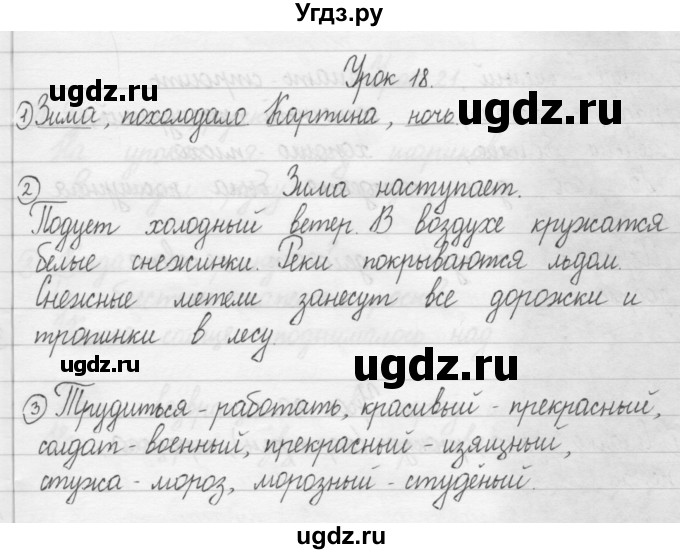 Угдз.ру
Урок 18.
1) Зима, похолодало Картина, ночь
2) Зима наступает.
Подует холодный ветер. В воздухе кружатся
белые снежинки. Реки покрываются льдом.
Снежные метели занесут все дорожки и
тропинки в лесу.
3) Трудиться - работать, красивый - прекрасный,
солдат - военный, прекрасный - изящный,
стужа - мороз, морозный - студёный.
ugdz.ru
ugdz.ru
ugdz.ru
ugdz.ru
ugdz.ru
ugdz.ru
ugdz.ru
ugdz.ru